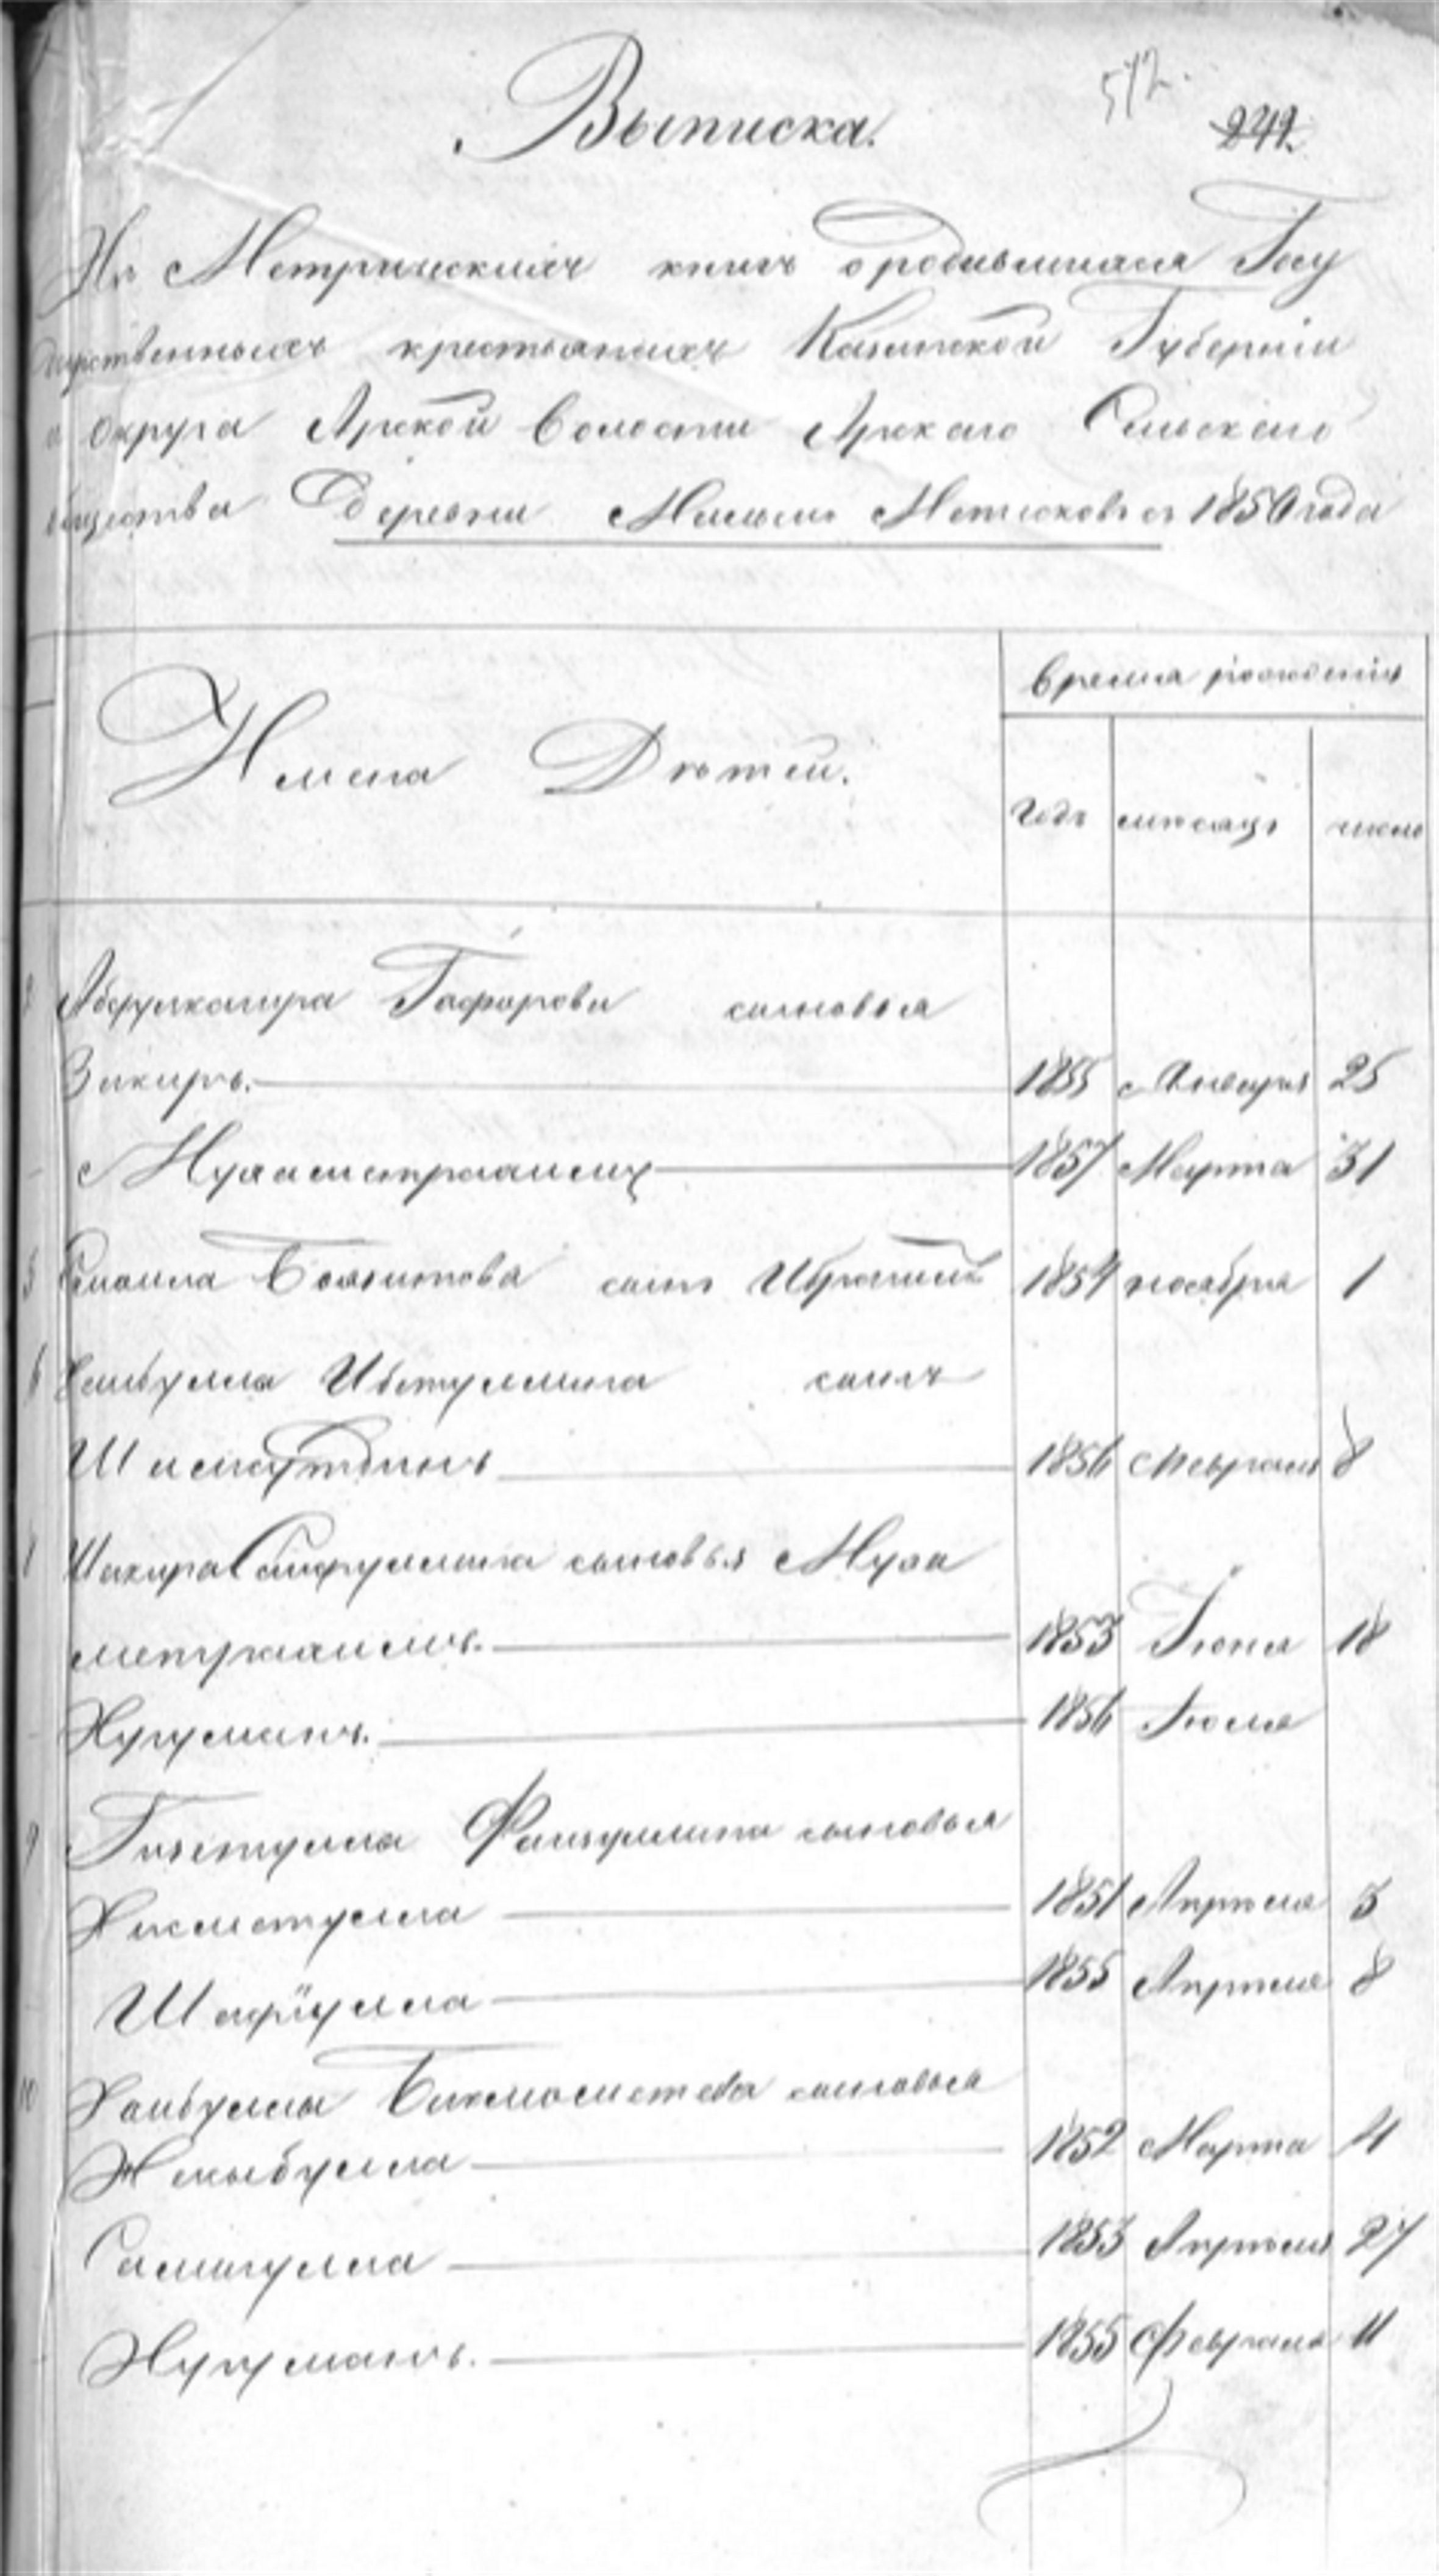 Выписка.
512.
242.
Изъ Метрическихъ книгъ о родившихся Госу
дарственныхъ крестьянахъ Казанской Губерніи
округа Арской волости Арскаго Сельскаго
общества Деревни Малыхъ Метесковъ съ 1850 года
Имена Дѣтей.
время рожденія
годъ мѣсяцъ число
Абдулкагира Гафарова сыновья
Закиръ. 1855 Января 25
Мухаметрахимъ 1857 Марта 31
Смаила Баязитова сынъ Ибрагимъ 1854 ноября 1
6 Сынъ
Шамсутдинъ 1856 Февраля 8
Шакира Сайфуллина сыновья Муха
метрахимъ. 1853 Іюня 18
Нугуманъ. 1856 Іюля
9 Гизетулла Файзуллина сыновья
Хикметулла 1851 Апрѣля 3
Шафіулла 1855 Апрѣля 8
10 Хабибуллы Бикмометева сыновья
1852 Марта 4
Самигулла 1853 Апрѣля 27
Нугуманъ. 1855 Февраля 11